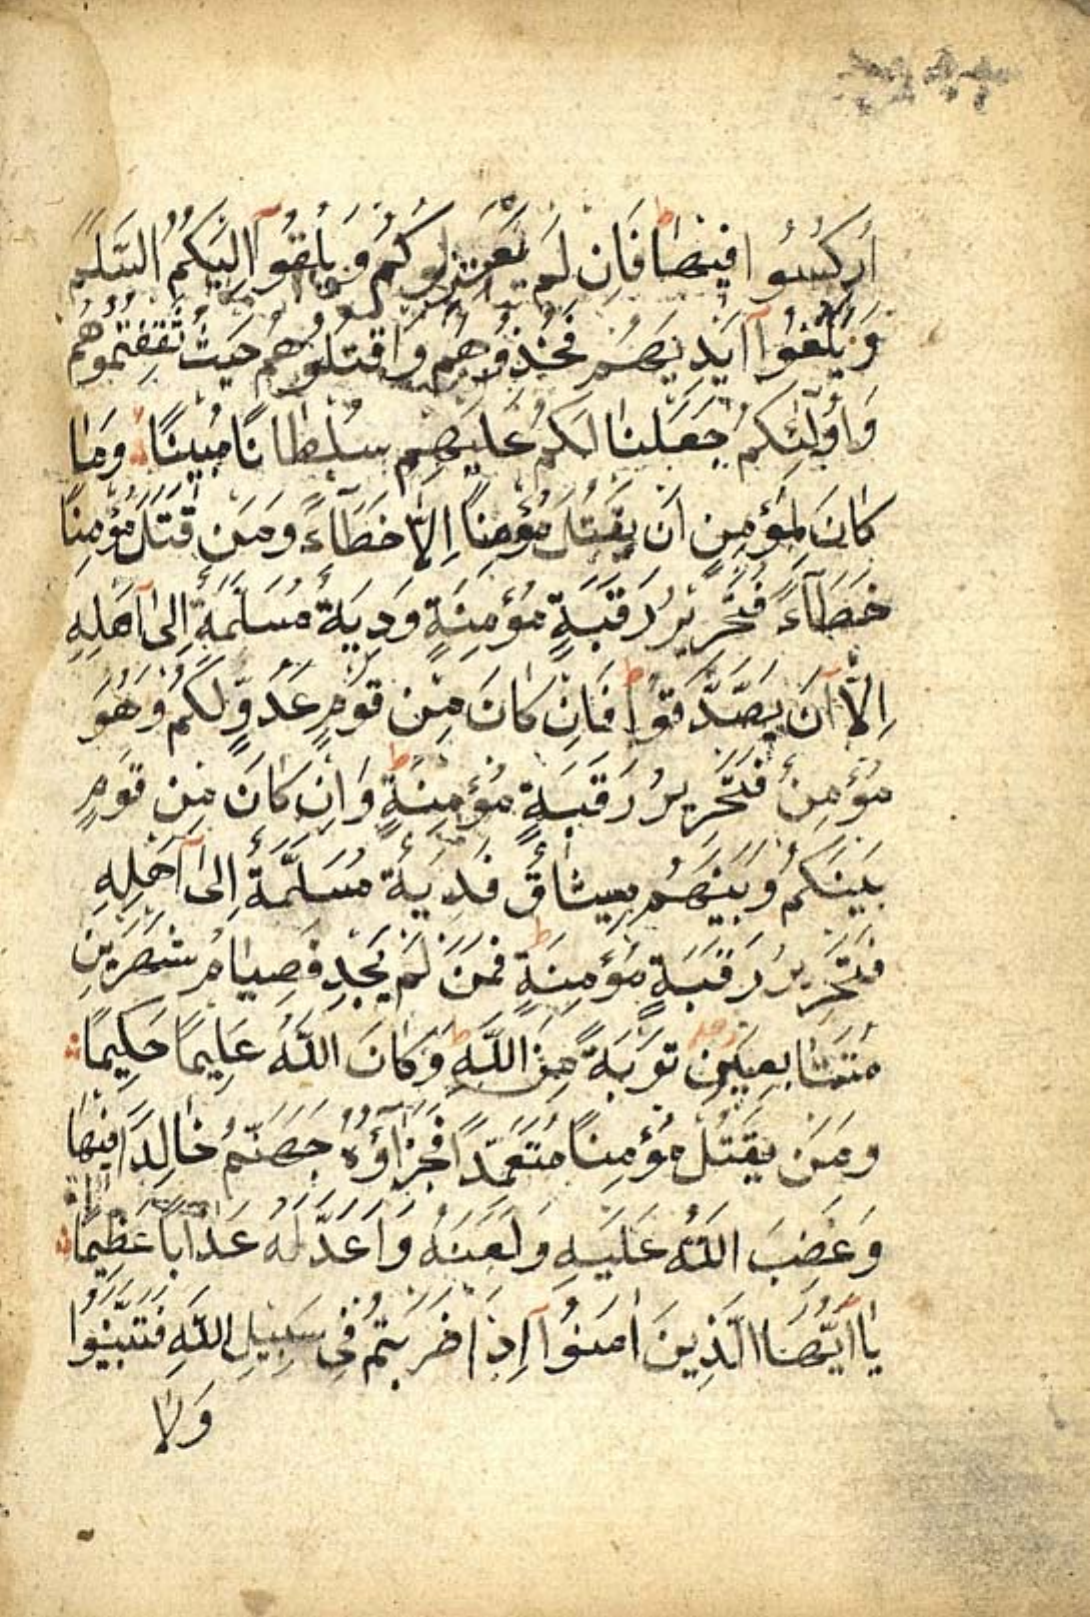 اُرْكِسُوا فِيْهَا ط فَاِنْ لَمْ يَعْتَزِلُوكُمْ وَيُلْقُوٓا اِلَيْكُمُ السَّلَمَ
وَيَكُفُّوٓا اَيْدِيَهُمْ فَخُذُوهُمْ وَاقْتُلُوهُمْ حَيْثُ ثَقِفْتُمُوهُمْ
وَاُولٰٓئِكُمْ جَعَلْنَا لَكُمْ عَلَيْهِمْ سُلْطَانًا مُبِينًا وَمَا
كَانَ لِمُؤْمِنٍ اَنْ يَقْتُلَ مُؤْمِنًا اِلَّا خَطَآءً وَمَنْ قَتَلَ مُؤْمِنًا
خَطَآءً فَتَحْرِيرُ رَقَبَةٍ مُؤْمِنَةٍ وَدِيَةٌ مُسَلَّمَةٌ اِلٰٓى اَهْلِهِ
اِلَّآ اَنْ يَصَّدَّقُوا ط فَاِنْ كَانَ مِنْ قَوْمٍ عَدُوٍّ لَكُمْ وَهُوَ
مُؤْمِنٌ فَتَحْرِيرُ رَقَبَةٍ مُؤْمِنَةٍ ط وَاِنْ كَانَ مِنْ قَوْمٍ
بَيْنَكُمْ وَبَيْنَهُمْ مِيثَاقٌ فَدِيَةٌ مُسَلَّمَةٌ اِلٰٓى اَهْلِهِ
فَتَحْرِيرُ رَقَبَةٍ مُؤْمِنَةٍ ط فَمَنْ لَمْ يَجِدْ فَصِيَامُ شَهْرَيْنِ
مُتَتَابِعَيْنِ تَوْبَةً مِنَ اللّٰهِ ط وَكَانَ اللّٰهُ عَلِيمًا حَكِيمًا
وَمَنْ يَقْتُلْ مُؤْمِنًا مُتَعَمِّدًا فَجَزَآؤُهُ جَهَنَّمُ خَالِدًا فِيْهَا
وَغَضِبَ اللّٰهُ عَلَيْهِ وَلَعَنَهُ وَاَعَدَّ لَهُ عَذَابًا عَظِيمًا
يَآ اَيُّهَا الَّذِينَ اٰمَنُوٓا اِذَا ضَرَبْتُمْ فِى سَبِيلِ اللّٰهِ فَتَبَيَّنُوا
وَلَا